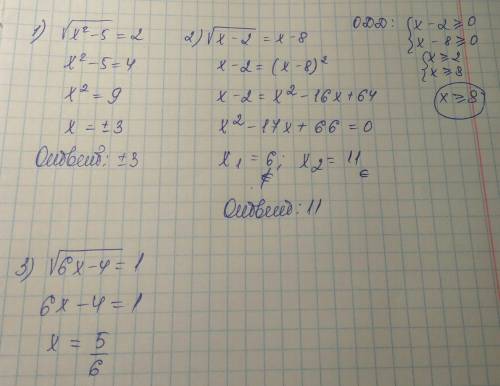 1) √x²-5 = 2
x²-5=4
x²=9
x=±3
Ответ: ±3
2) √x-2 = x-8
x-2=(x-8)²
x-2=x²-16x+64
x²-17x+66=0
x₁=6; x₂=11
∉ ∈
Ответ: 11
ОДЗ: { x-2≥0
x-8≥0
{ x≥2
x≥8
x≥8
3) √6x-4=1
6x-4=1
x=5/6